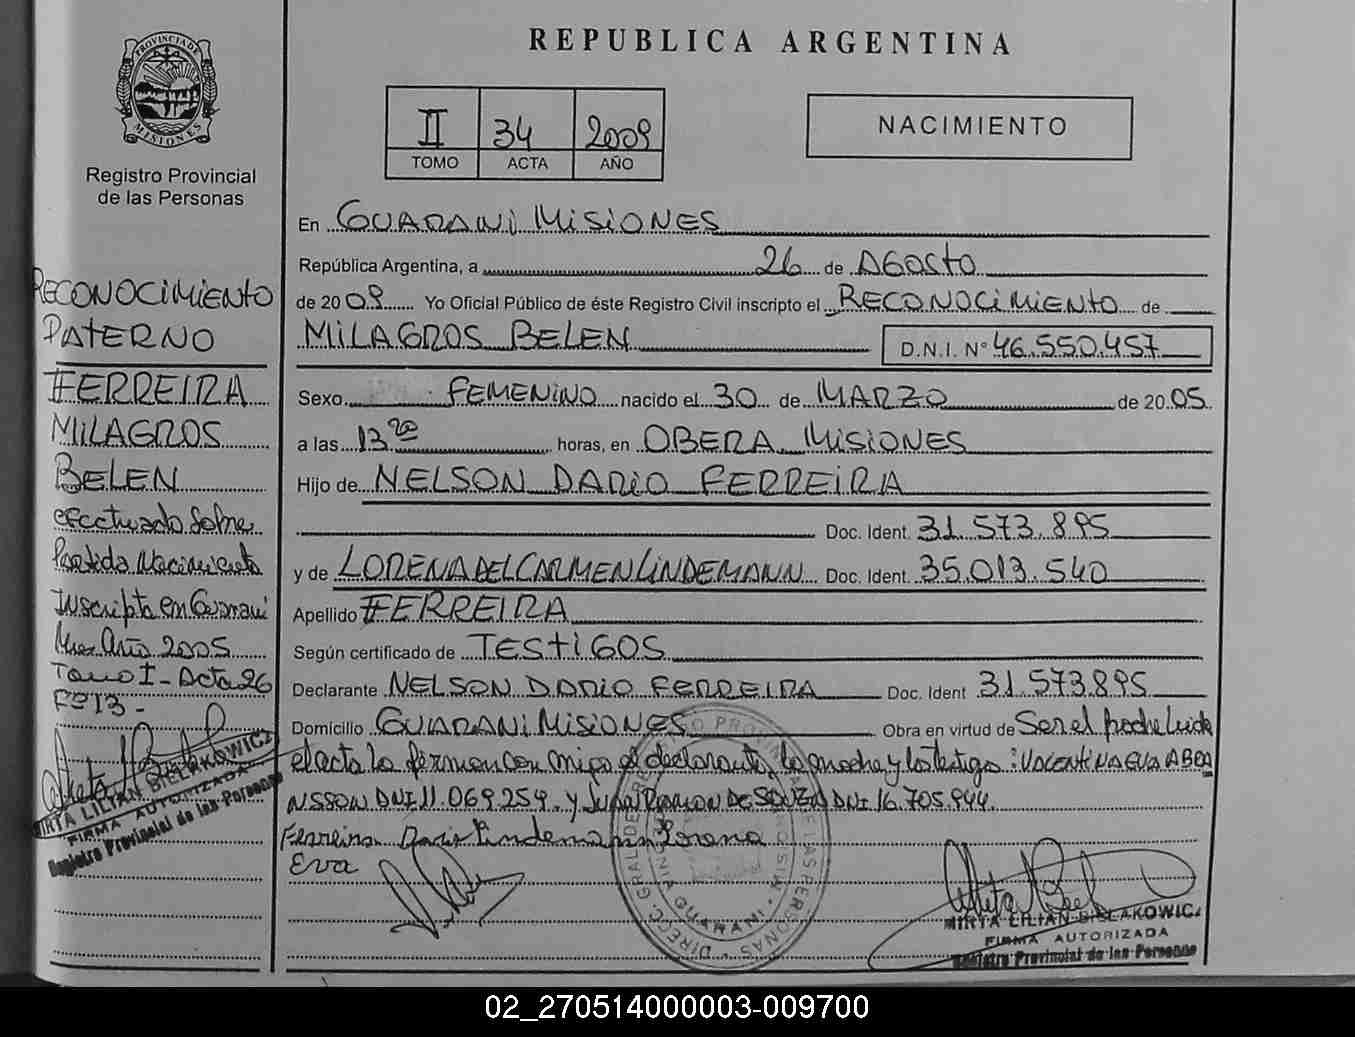 PROVINCIA DE
MISIONES
Registro Provincial
de las Personas
RECONOCIMIENTO
PATERNO
FERREIRA
MILAGROS
BELEN
efectuado Sobre
Partida Nacimiento
Inscripta en Guarani
Mnes Año 2005
Tomo I - Acta 26
Fº 13 -
MIRTA LILIAN BIELAKOWICZ
FIRMA AUTORIZADA
Registro Provincial de las Personas
REPUBLICA ARGENTINA
II 34 2009
TOMO ACTA AÑO
NACIMIENTO
En GUARANI MISIONES
República Argentina, a 26 de AGOSTO
de 2009 Yo Oficial Público de éste Registro Civil inscripto el RECONOCIMIENTO de
MILAGROS BELEN D.N.I. Nº 46.550.457
Sexo FEMENINO nacido el 30 de MARZO de 2005
a las 13 20 horas, en OBERA MISIONES
Hijo de NELSON DARIO FERREIRA
Doc. Ident. 31.573.895
y de LORENA DEL CARMEN LINDEMANN Doc. Ident. 35.013.540
Apellido FERREIRA
Según certificado de TESTIGOS
Declarante NELSON DARIO FERREIRA Doc. Ident 31.573.895
Domicilio GUARANI MISIONES Obra en virtud de Ser el padre Leida
el acta la firman con migo el declarante, la madre y los testigos: VALENTINA EVA ABRA
NSSON DNI 11.069.259 y Juan Ramon DE SOUZA DNI 16.705.944
Ferreira Dario Lindemann Lorena
Eva
DIRECC. GRAL. DE REGISTRO PROVINCIAL DE LAS PERSONAS
GUARANI - MISIONES
MIRTA LILIAN BIELAKOWICZ
FIRMA AUTORIZADA
Registro Provincial de las Personas
02_270514000003-009700